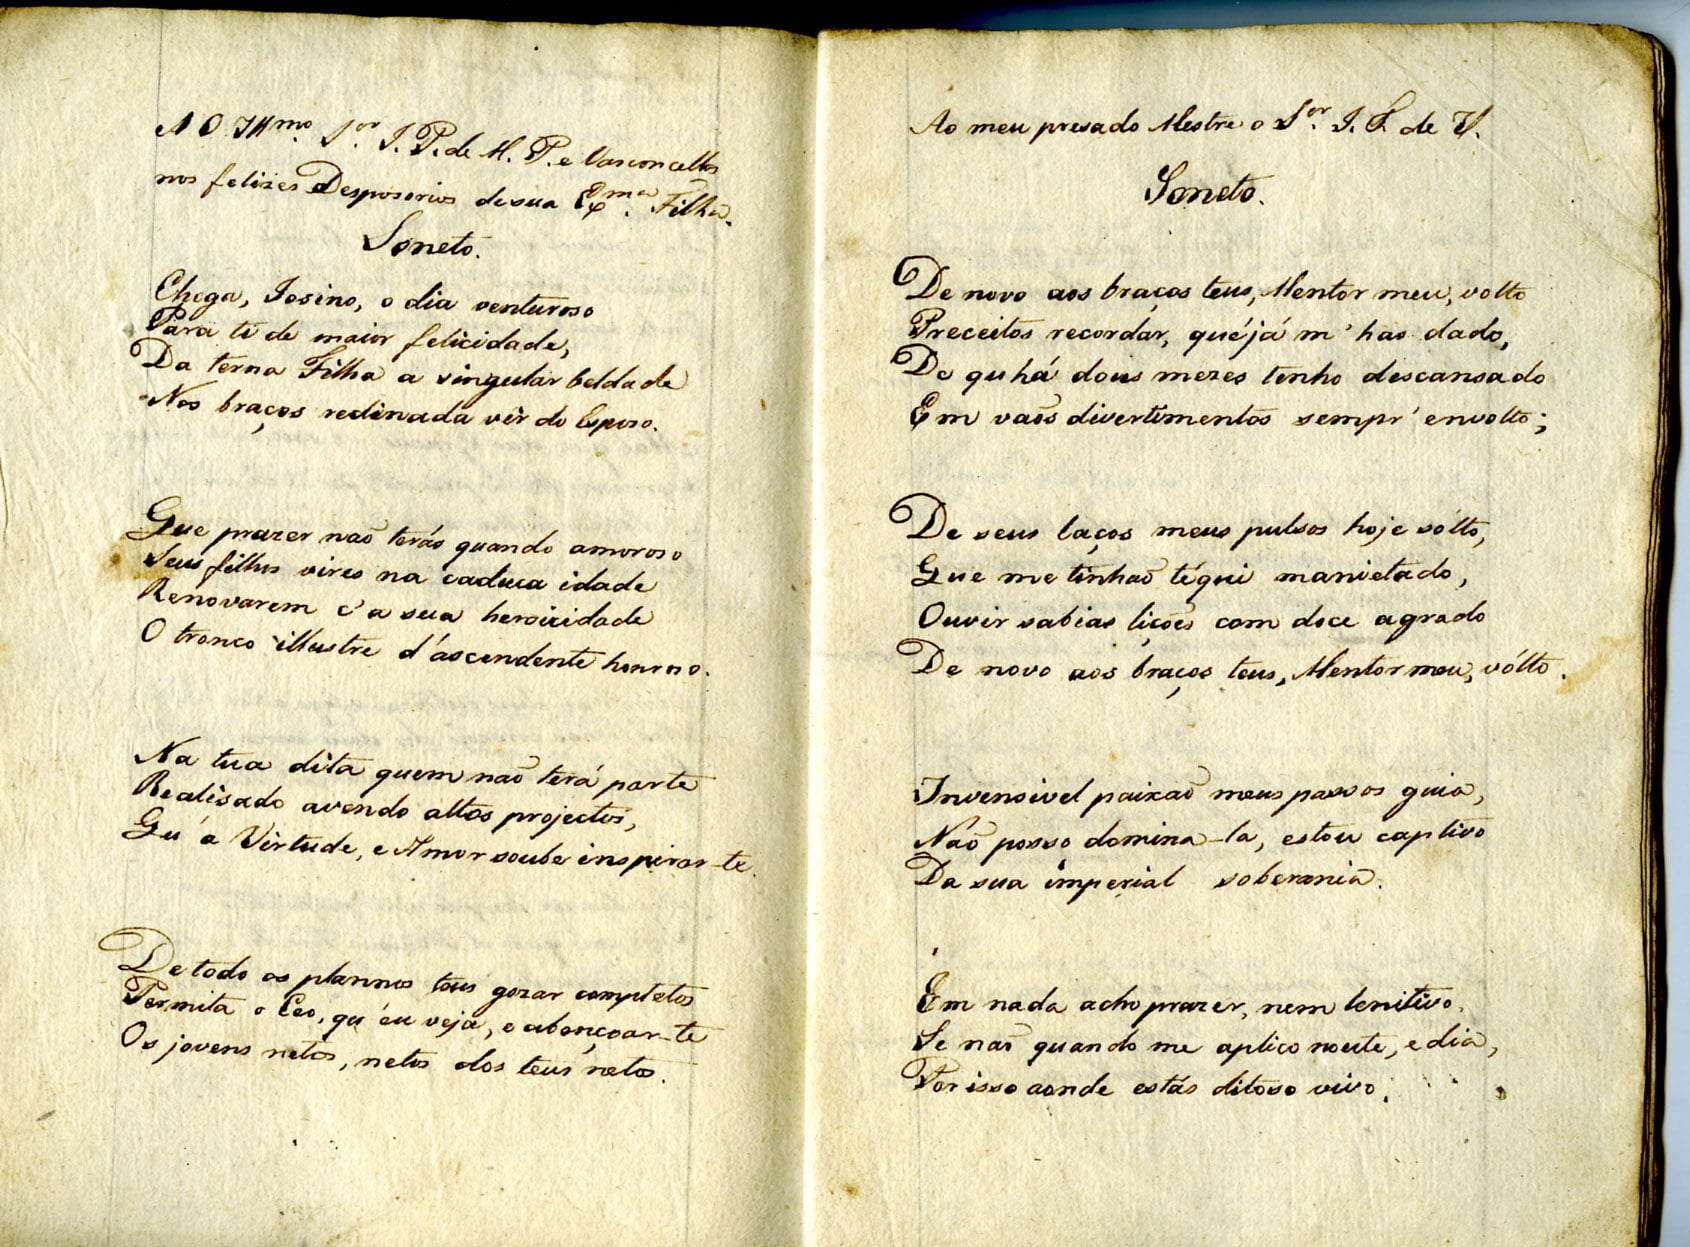 AO Illmo. Sor. J. P. de M. P. e Vasconcellos
nos felizes Desposorios de sua Exma. Filha.
Soneto.
Chega, Josino, o dia venturoso
Para ti de maior felicidade,
Da terna Filha a singular beldade
Nos braços reclinada vêr do Esposo.
Que prazer naõ terás quando amoroso
Seus filhos vires na caduca idade
Renovarem c'a sua heroicidade
O tronco illustre d'áscendente honroso.
Na tua dita quem naõ terá parte
Realisado avendo altos projectos,
Qu'a Virtude, e Amor soube inspirar-te.
De todo os plannos teus gozar completos
Permita o Ceo, qu'éu veja, e abençoar-te
Os jovens netos, netos dos teus netos.
Ao meu presado Mestre o Sor. J. P. de V.
Soneto.
De novo aos braços teus, Mentor meu, volto
Preceitos recordar, qué já m'has dado,
De qu há dous mezes tenho descansado
Em vaõs divertimentos sempr'envolto;
De seus laços meus pulsos hoje sólto,
Que me tinhaõ téqui manietado,
Ouvir sabias liçoẽs com doce agrado
De novo aos braços teus, Mentor meu, vólto.
Invensivel paixaõ meus passos guia,
Naõ posso domina-la, estou captivo
Da sua imperial soberania.
Em nada acho prazer, nem lenitivo,
Se naõ quando me aplico noute, e dia,
Por isso aonde estás ditoso vivo.